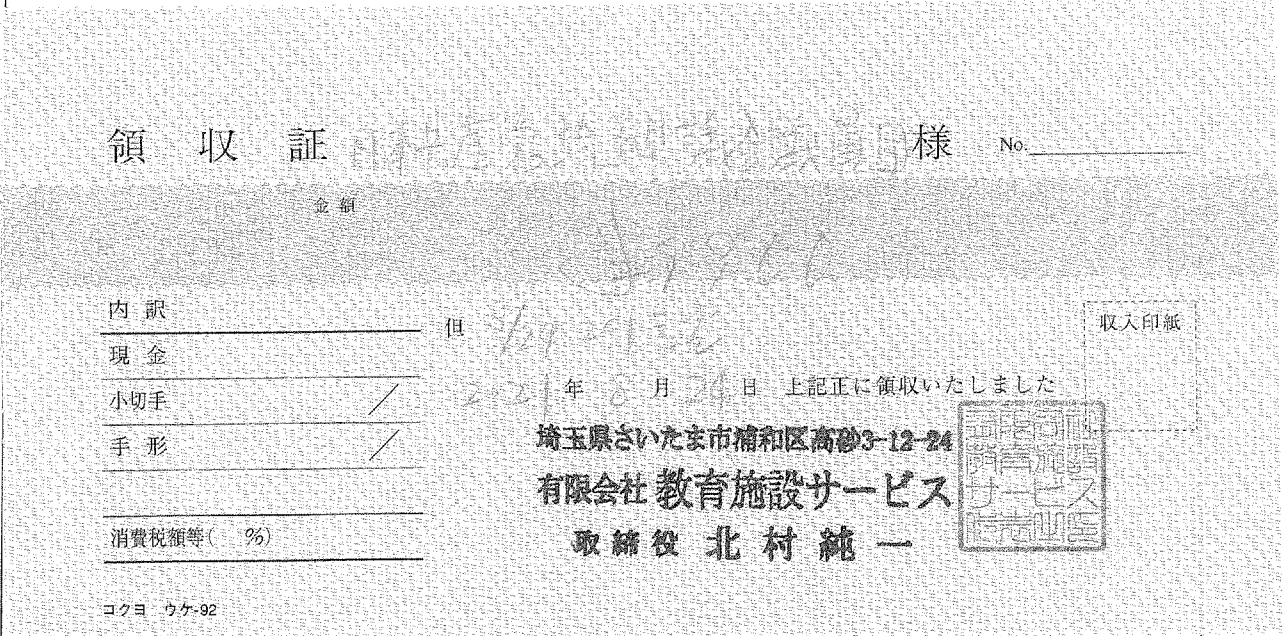 領収証 様 No.
金額
内訳
現金
小切手
手形
消費税額等( %)
但
収入印紙
2021年 8月 24日 上記正に領収いたしました
埼玉県さいたま市浦和区高砂3-12-24
有限会社 教育施設サービス
取締役 北村純一
コクヨ ウケ-92